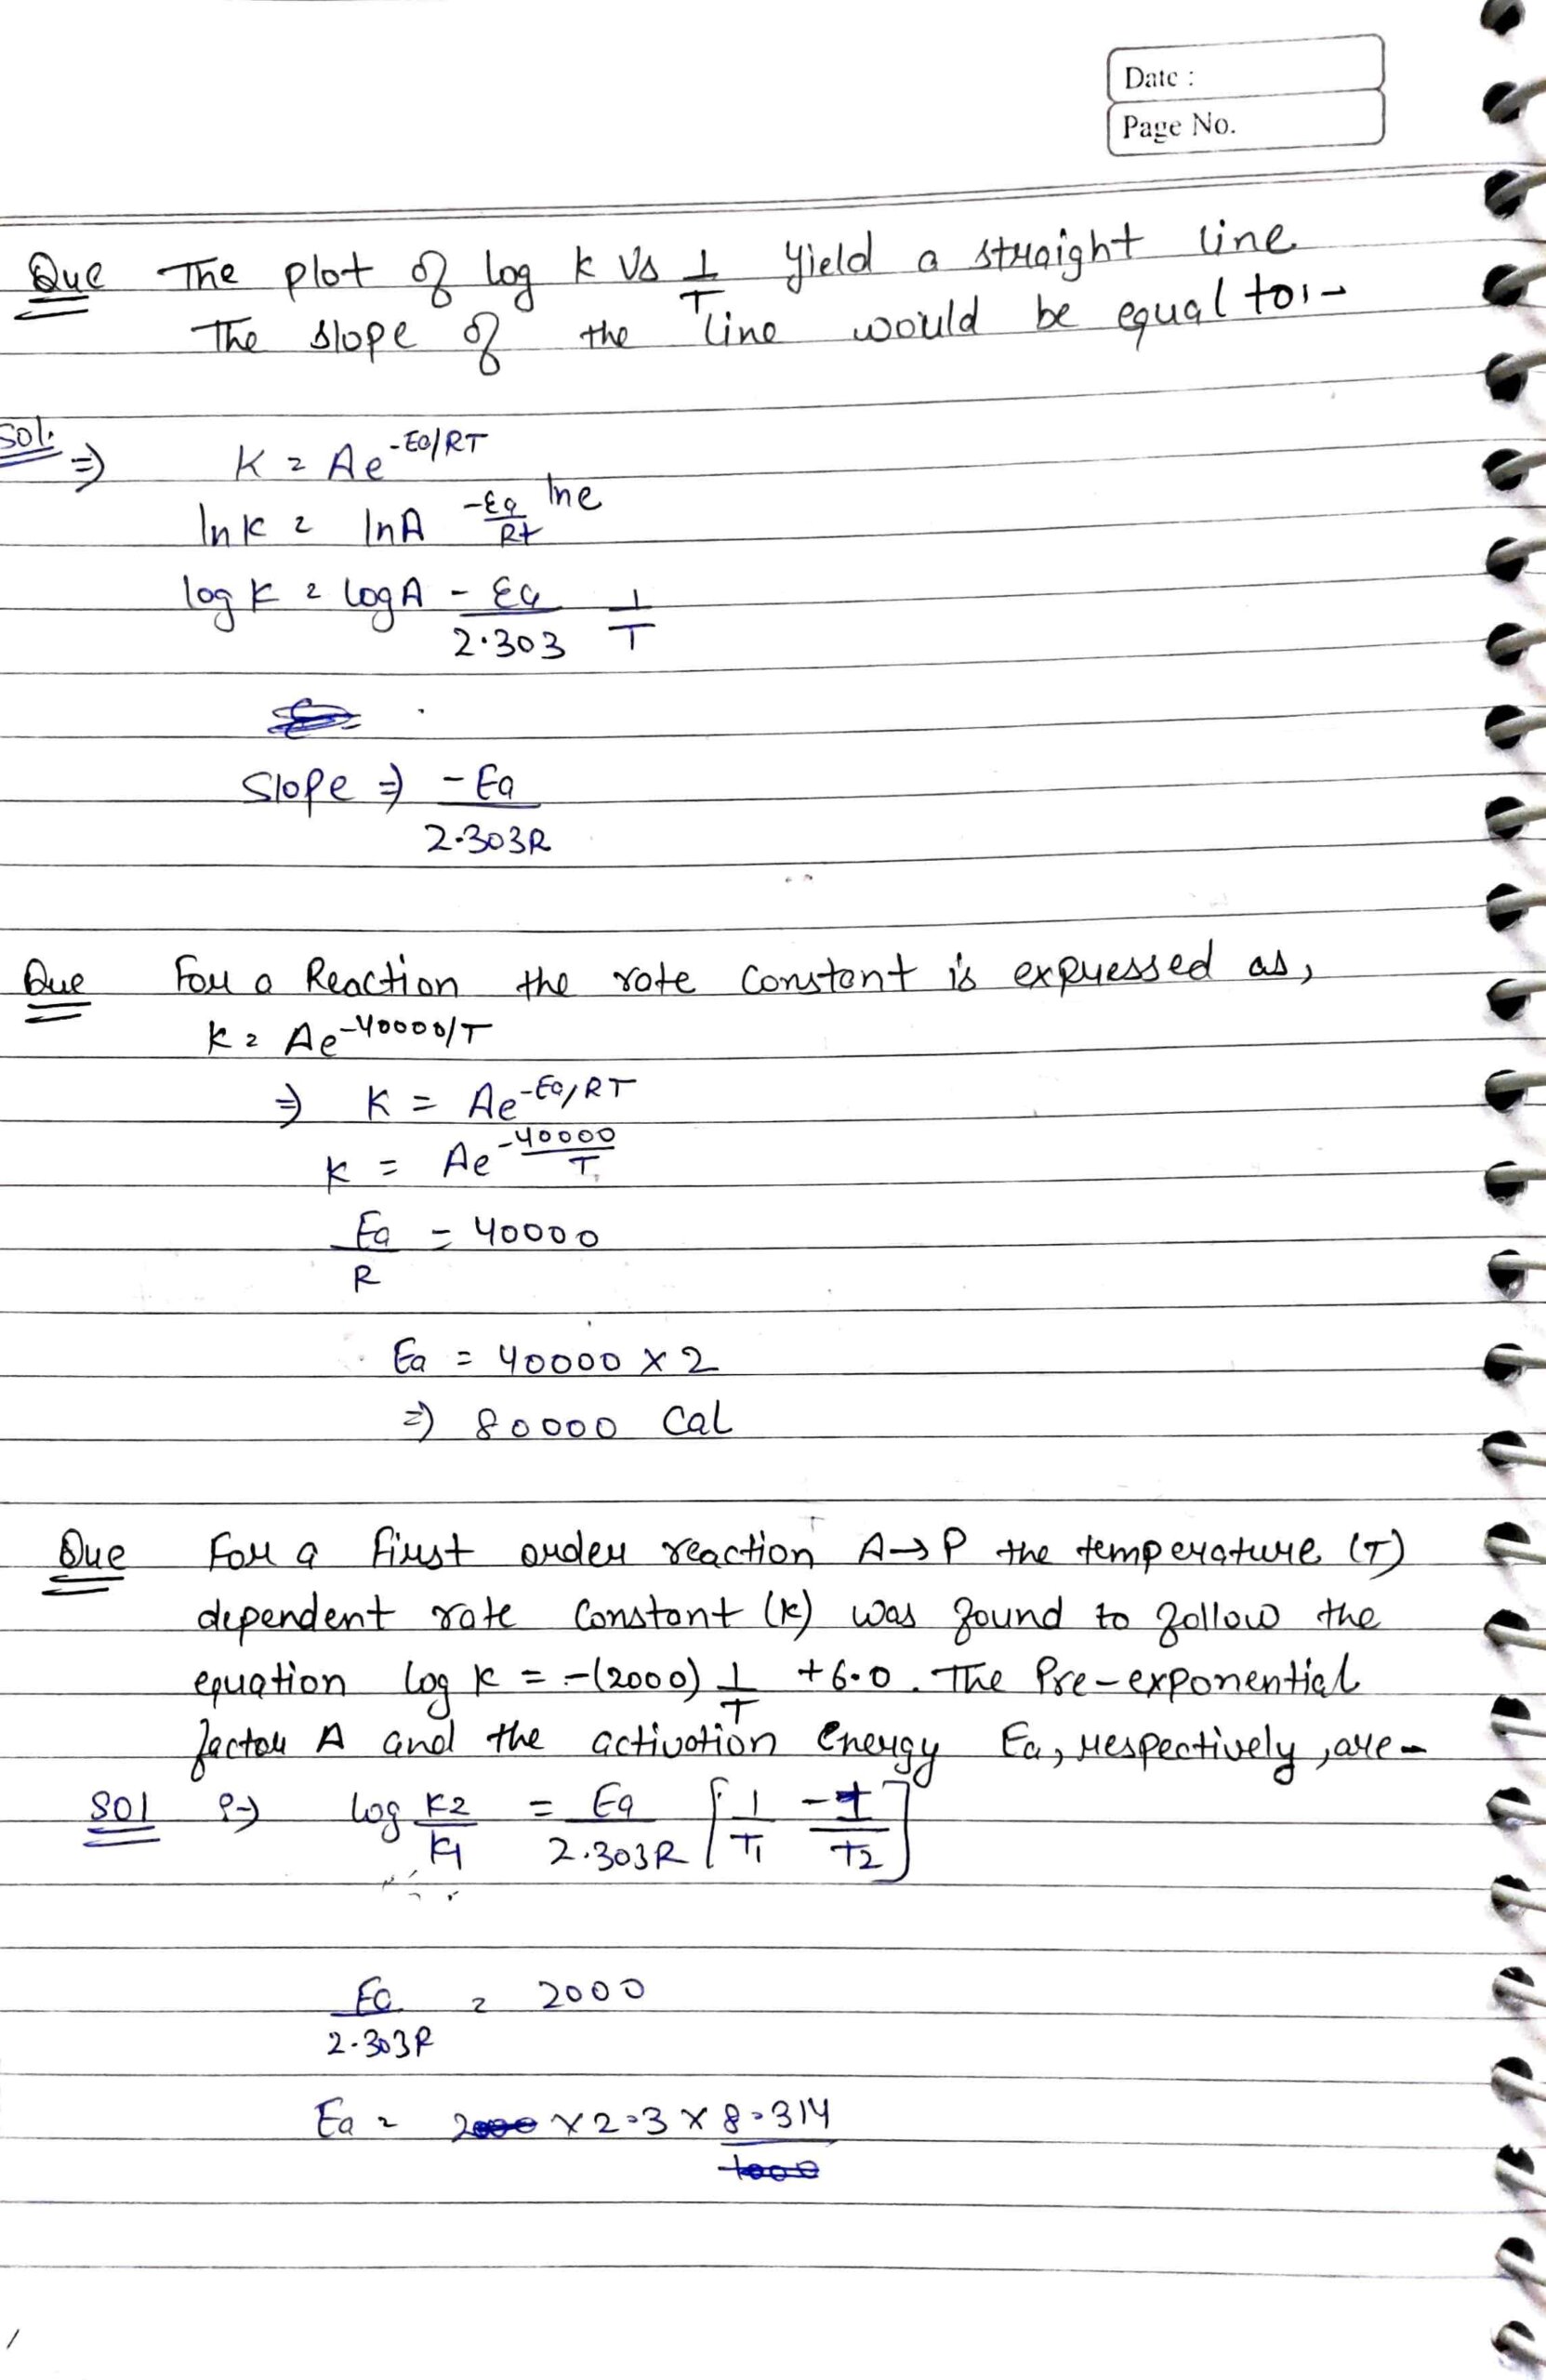 Date :
Page No.
Que The plot of log k vs 1/T yield a straight line
The slope of the line would be equal to:-
Sol. ⇒ K = Ae^-Ea/RT
lnk = lnA -Ea/Rt lne
log K = log A - Ea/2.303 1/T
Slope ⇒ -Ea/2.303R
Que For a Reaction the rate constant is expressed as,
K = Ae^-40000/T
⇒ K = Ae^-Ea/RT
K = Ae^-40000/T
Ea/R = 40000
Ea = 40000 × 2
⇒ 80000 Cal
Que For a first order reaction A→P the temperature (T)
dependent rate constant (k) was found to follow the
equation log k = -(2000) 1/T + 6.0. The Pre-exponential
factor A and the activation energy Ea, respectively, are-
Sol log K2/K1 = Ea/2.303R [1/T1 - 1/T2]
Ea/2.303R = 2000
Ea = 2000 × 2.3 × 8.314/1000